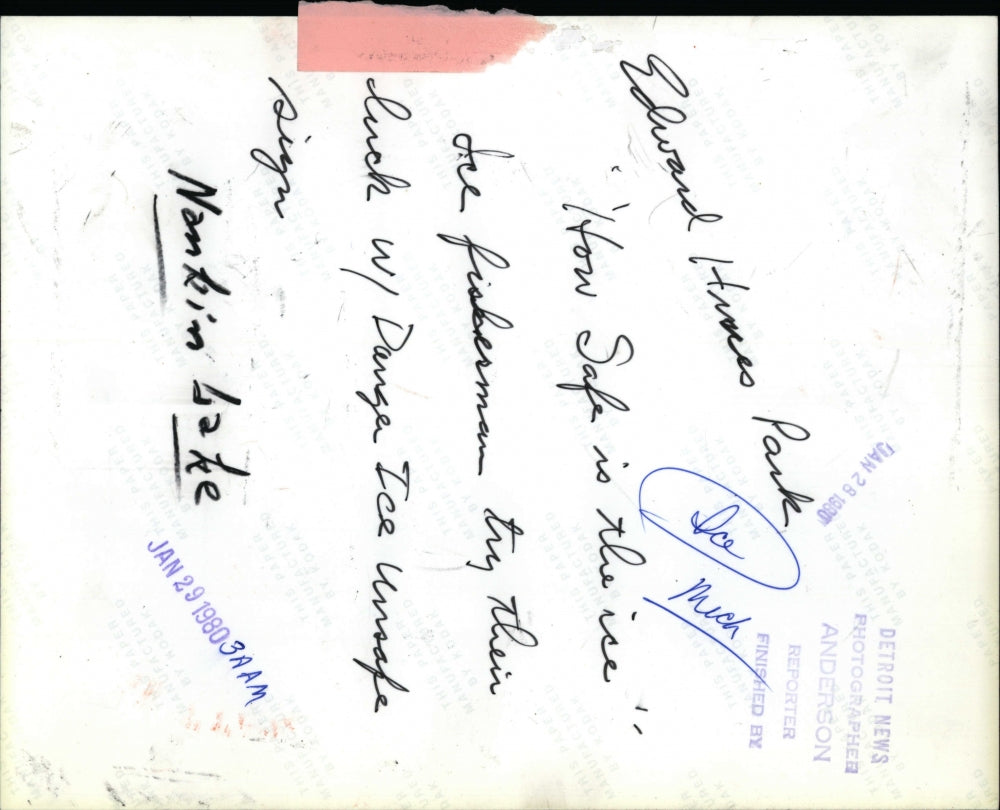 DETROIT NEWS
PHOTOGRAPHER
ANDERSON
REPORTER
FINISHED BY
JAN 28 1980
Edward Hines Park
Ice
Mich
"How Safe is the ice"
Ice fisherman try their
luck w/ Danger Ice Unsafe
sign
Nankin Lake
JAN 29 1980 3AAM
THIS PAPER
MANUFACTURED
BY KODAK